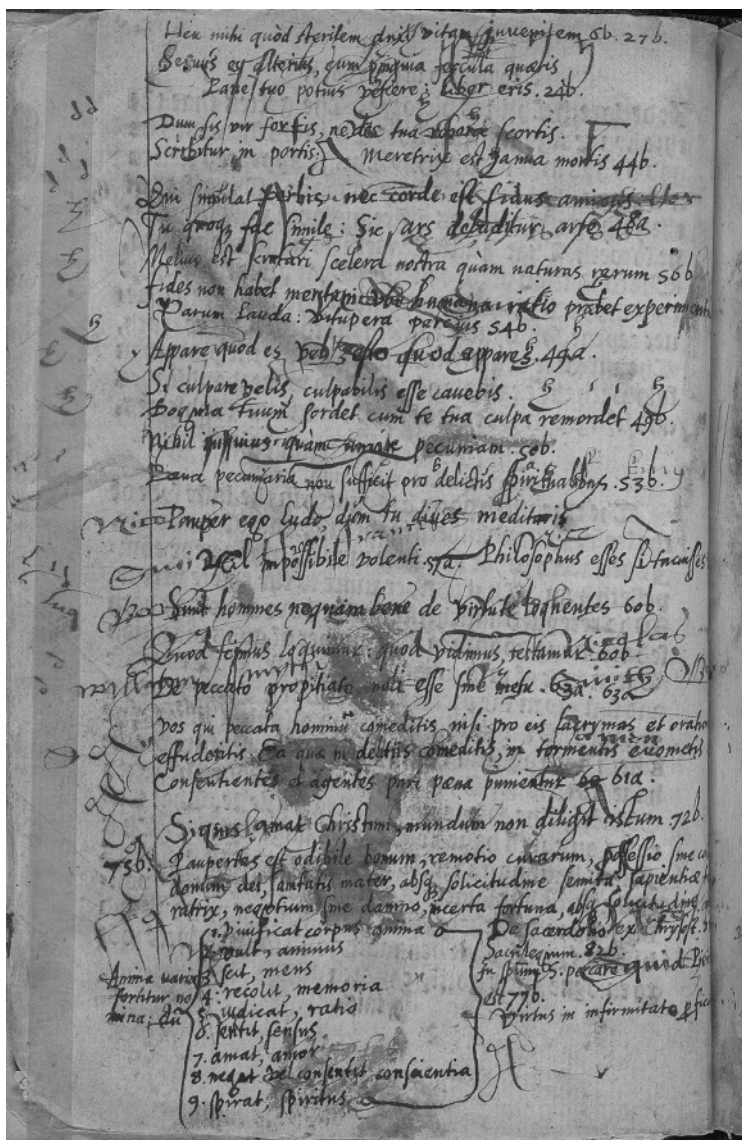 Heu mihi quòd sterilem duxi vitam juvenilem 6b. 27b.
Servus es alterius, cum pinguia fercula quæris
Pane tuo potius vescere: liber eris. 24b.
Dum sis vir fortis, ne des tua robora scortis.
Scribitur in portis: Meretrix est Janua mortis 44b.
Qui simulat verbis nec corde est fidus amicus
Tu quoqz fac simile: Sic ars deluditur arte 48a.
Melius est scrutari scelera nostra quàm naturas rerum 56b
Fides non habet meritum ubi humana ratio præbet experiment
Parum lauda: vitupera parcius 54b.
Appare quod es, vel esto quod appares. 49a.
Si culpare velis, culpabilis esse cavebis.
Dogma tuum sordet cum te tua culpa remordet 49b.
Nihil quàm amare pecuniam. 50b.
Pœna pecuniaria non sufficit pro delictis spiritualibus. 53b.
Pauper ego ludo, dum tu dives meditaris
Nil impossibile volenti. 57a. Philosophus esses si tacuisses
Sunt homines nequàm bene de virtute loquentes 60b.
Quod scimus loquimur: quod vidimus, testamur. 60b
Nicolas
De peccato propitiato noli esse sine metu. 63a. 63a
Smith
vos qui peccata hominū comeditis, nisi pro eis lacrymas et oratio
effuderitis. Ea quæ in delitiis comeditis, in tormentis evometis
Consentientes et agentes pari pœna punientur 61a.
Siquis amat Christum, mundum non diligit istum. 72b.
75b. Paupertas est odibile bonum, remotio curarum, possessio sine
donum dei, sanitatis mater, absqz solicitudine semita, sapientiæ
ratrix, negotium sine damno, incerta fortuna, absqz solicitudine
Anima varia
sortitur no
mina; dū
1. vivificat corpus anima
2. vult, animus
3. scit, mens
4. recolit, memoria
5. judicat, ratio
6. sentit, sensus
7. amat, amor
8. negat vel consentit conscientia
9. spirat, spiritus
De sacerdotio ex Chrysost.
Sacrilegium. 82b.
peccare quid
est 77b.
Virtus in infirmitate